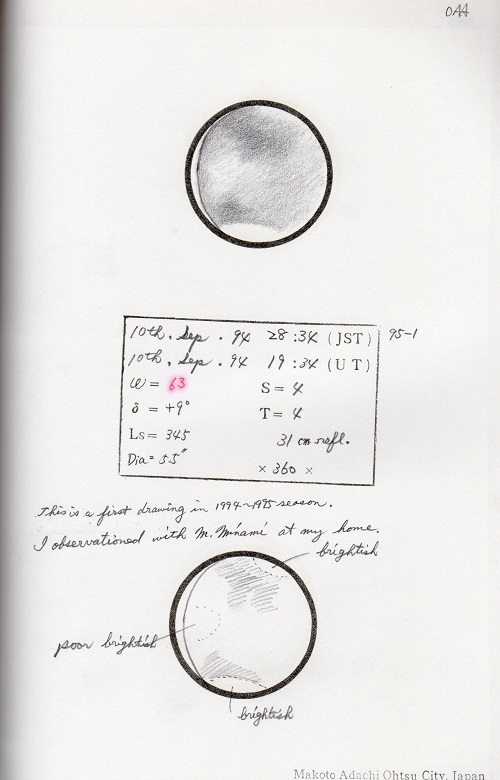 044
10th. Sep. 94 28:34 (JST) 95-1
10th. Sep. 94 19:34 (UT)
ω = 63 S = 4
δ = +9° T = 4
Ls = 345 31 cm refl.
Dia = 5.5" × 360 ×
This is a first drawing in 1994~1995 season.
I observationed with M. Minami at my home.
brightish
poor brightish
brightish
Makoto Adachi Ohtsu City, Japan